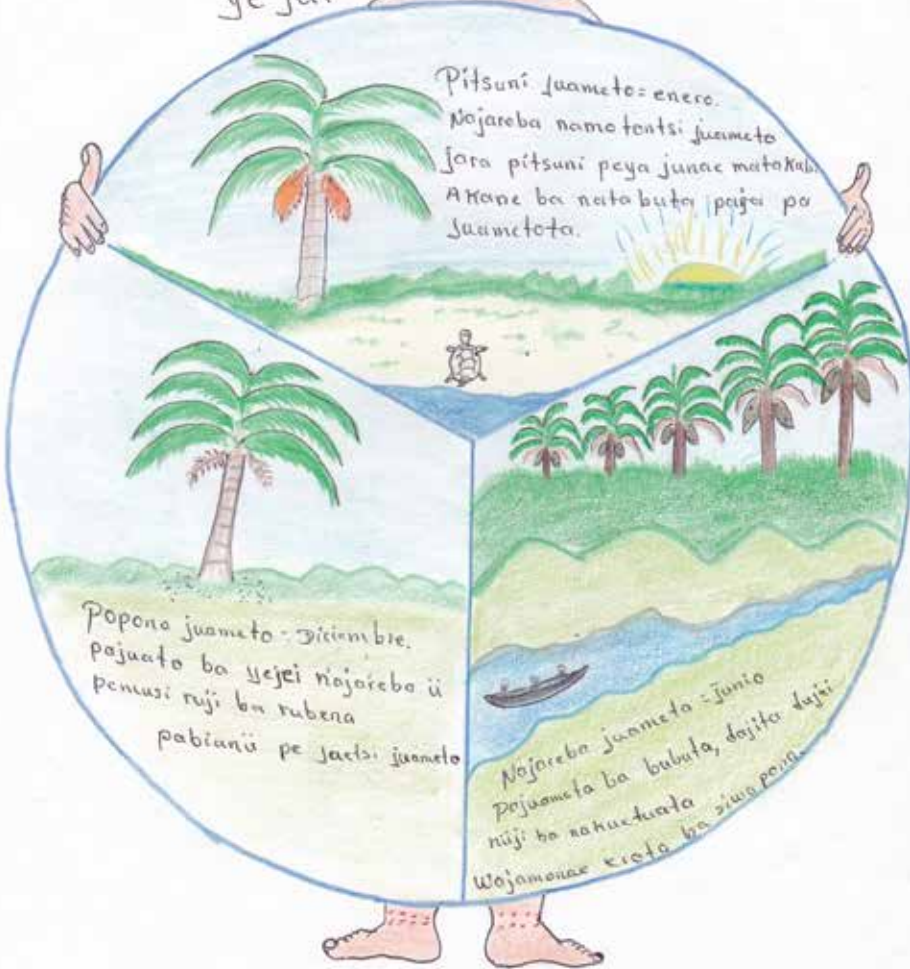 ye jua
Pitsuni juameto = enero.
Nojareba namo tontsi juameto
jara pitsuni peya junae matakabi
Akane ba natabuta pajai pa
juametota.
Popona juameto = Diciembre.
pajuato ba yejei nojareba ü
pemusi ruji ba rubena
pabianü pe jaetsi juameto
Nojareba juameta = junio
pajuameta ba bubuta, dajita dujai
nüji ba nakuetuata
Wajamonae ba siwa